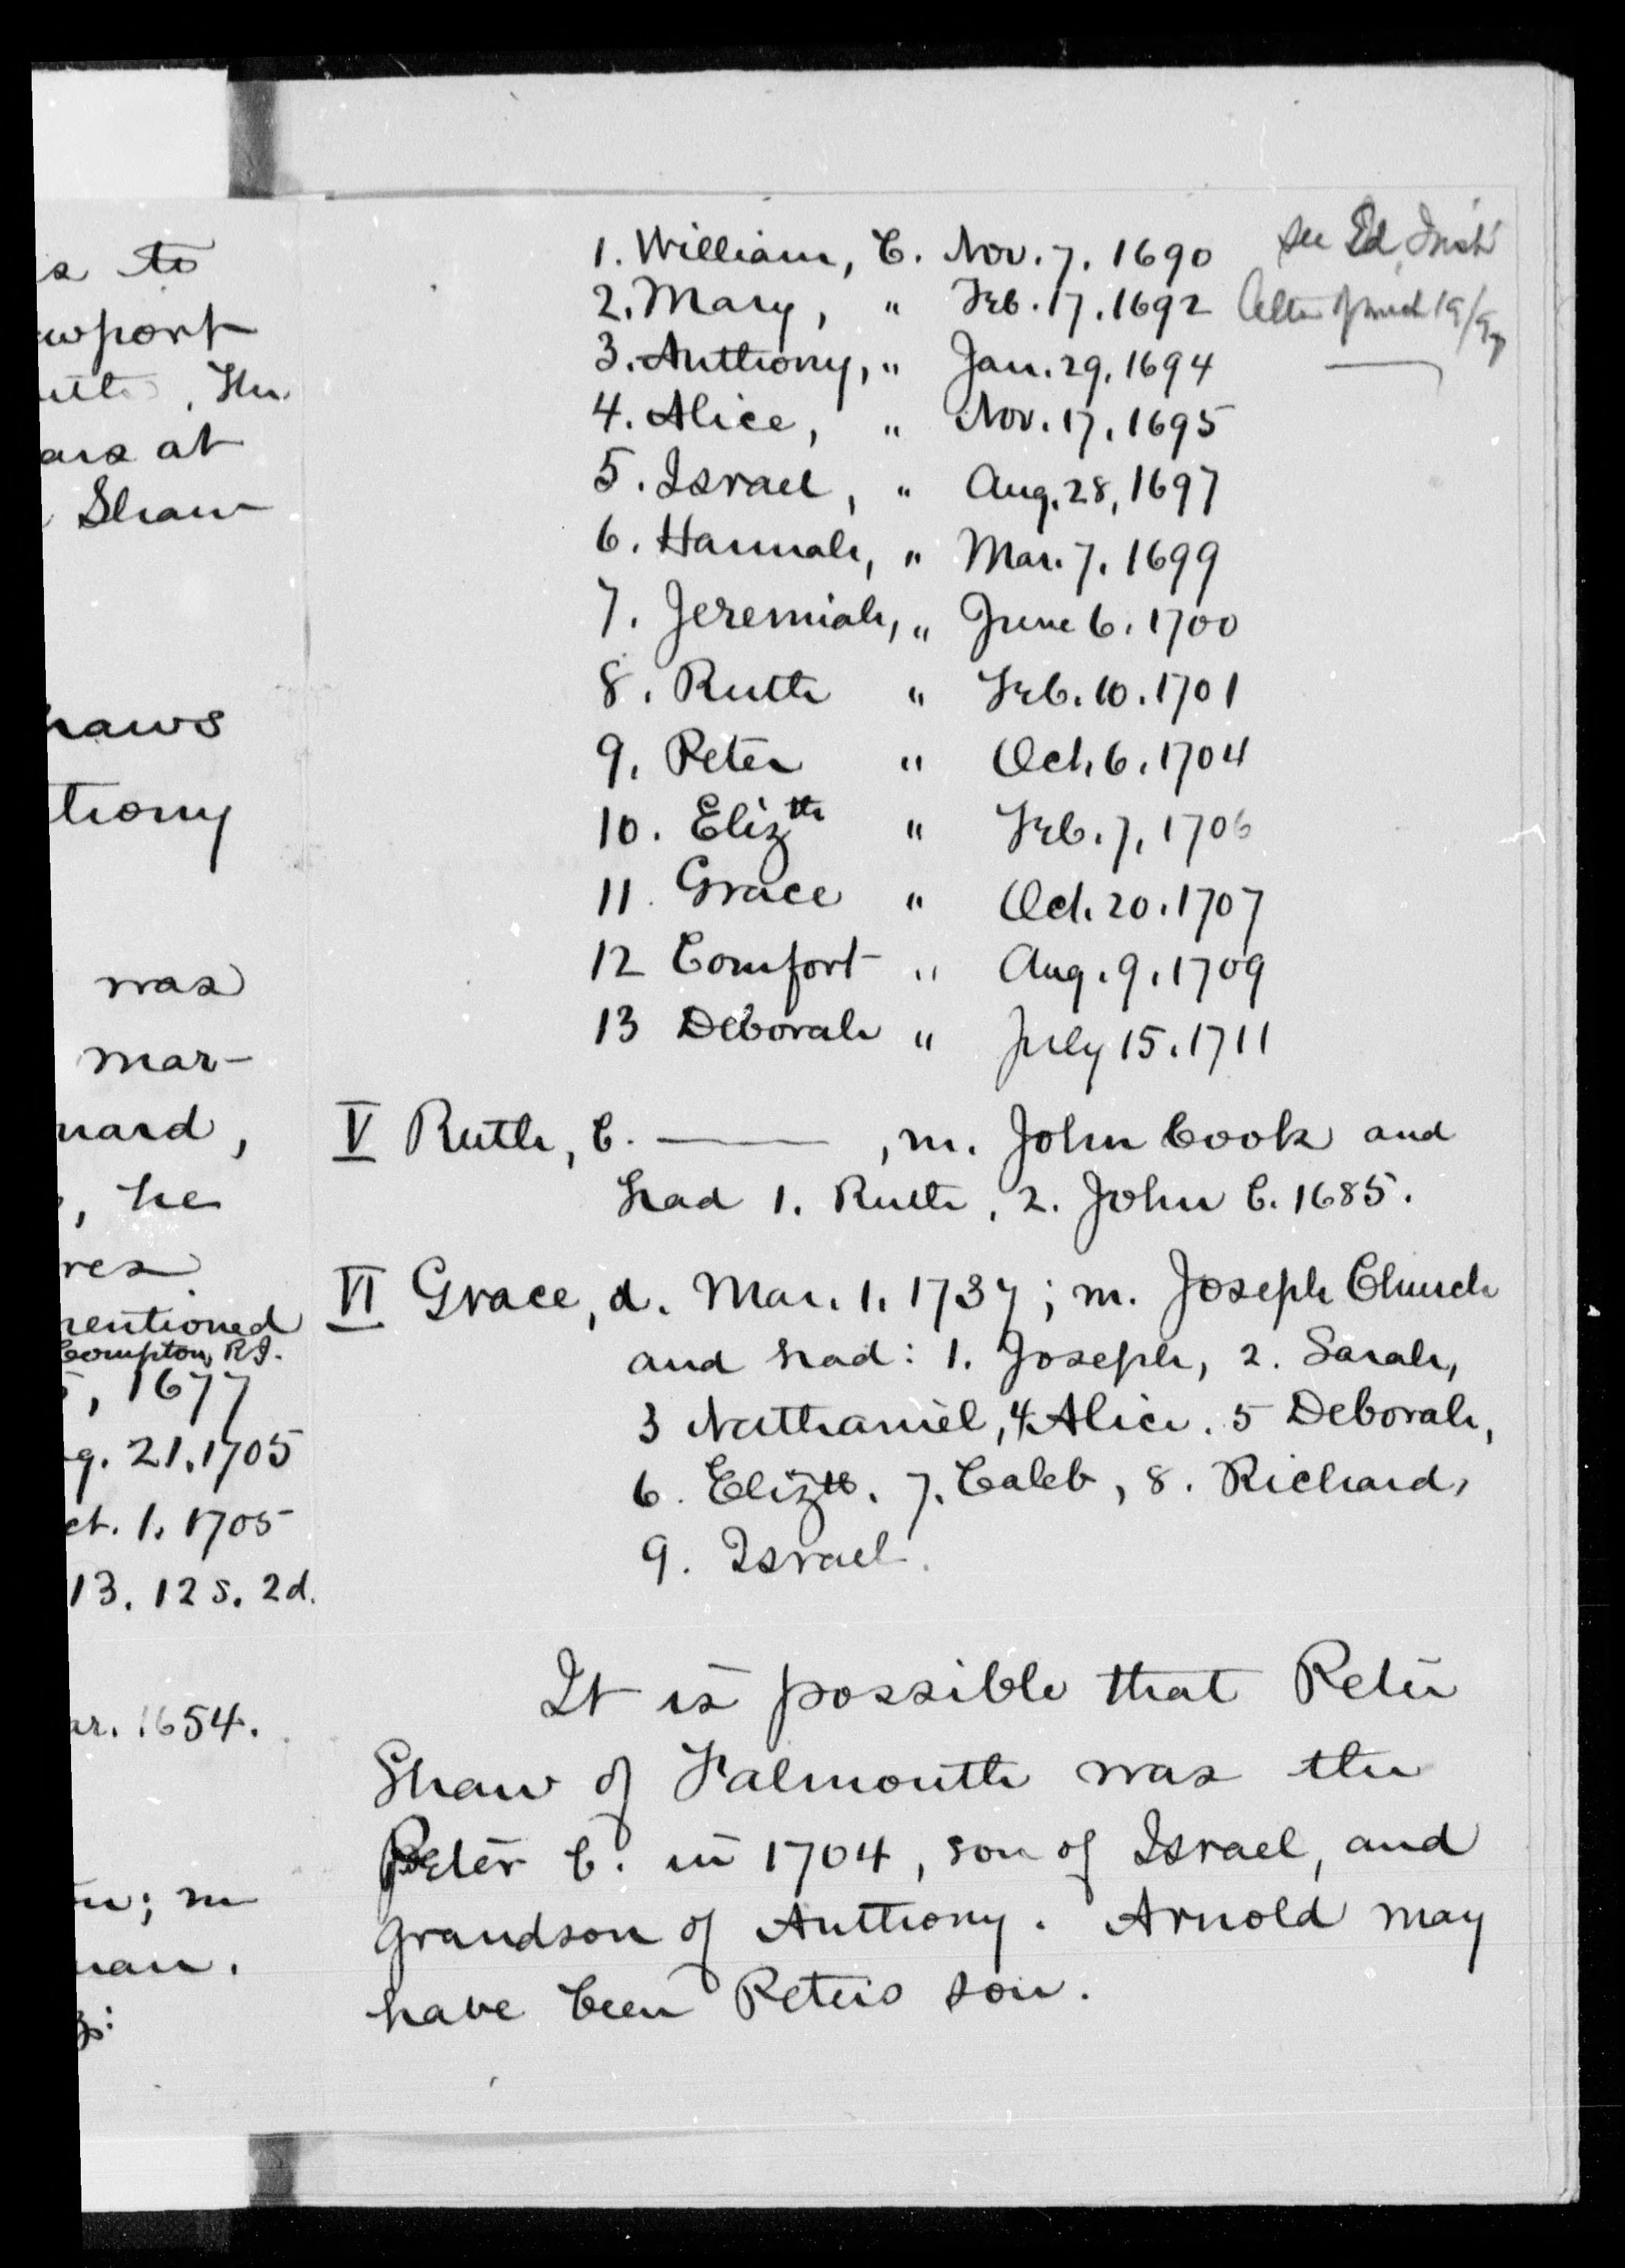 s to
wport
, The
ars at
Shaw
haws
thony
was
mar-
nard,
, he
res
mentioned
Compton, R.I.
5, 1677
g. 21, 1705
ct. 1. 1705
13. 12 s. 2d.
ar. 1654.
n; m
man.
1. William, b. Nov. 7. 1690
see Ed.
2. Mary, " Feb. 17. 1692
3. Anthony, " Jan. 29. 1694
4. Alice, " Nov. 17. 1695
5. Israel, " Aug. 28, 1697
6. Hannah, " Mar. 7. 1699
7. Jeremiah, " June 6. 1700
8. Ruth " Feb. 10. 1701
9. Peter " Oct. 6. 1704
10. Elizth " Feb. 7. 1706
11. Grace " Oct. 20. 1707
12 Comfort " Aug. 9. 1709
13 Deborah " July 15. 1711
V Ruth, b. ——— , m. John Cook and
had 1. Ruth, 2. John b. 1685.
VI Grace, d. Mar. 1. 1737; m. Joseph Church
and had: 1. Joseph, 2. Sarah,
3 Nathaniel, 4. Alice. 5 Deborah,
6. Elizth. 7. Caleb, 8. Richard,
9. Israel.
It is possible that Peter
Shaw of Falmouth was the
Peter b. in 1704, son of Israel, and
grandson of Anthony. Arnold may
have been Peters son.